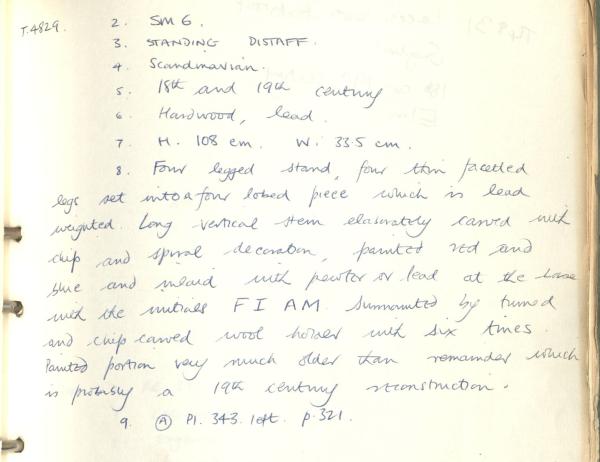 T.4829.
2. SM6.
3. STANDING DISTAFF.
4. Scandinavian.
5. 18th and 19th century
6. Hardwood, lead.
7. H. 108 cm. W. 33.5 cm.
8. Four legged stand, four thin facetted
legs set into a four lobed piece which is lead
weighted. Long vertical stem elaborately carved with
chip and spiral decoration, painted red and
blue and inlaid with pewter or lead at the base
with the initials F I A M. Surmounted by turned
and chip carved wool holder with six tines.
Painted portion very much older than remainder which
is probably a 19th century reconstruction.
9. Ⓐ Pl. 343. left. p. 321.